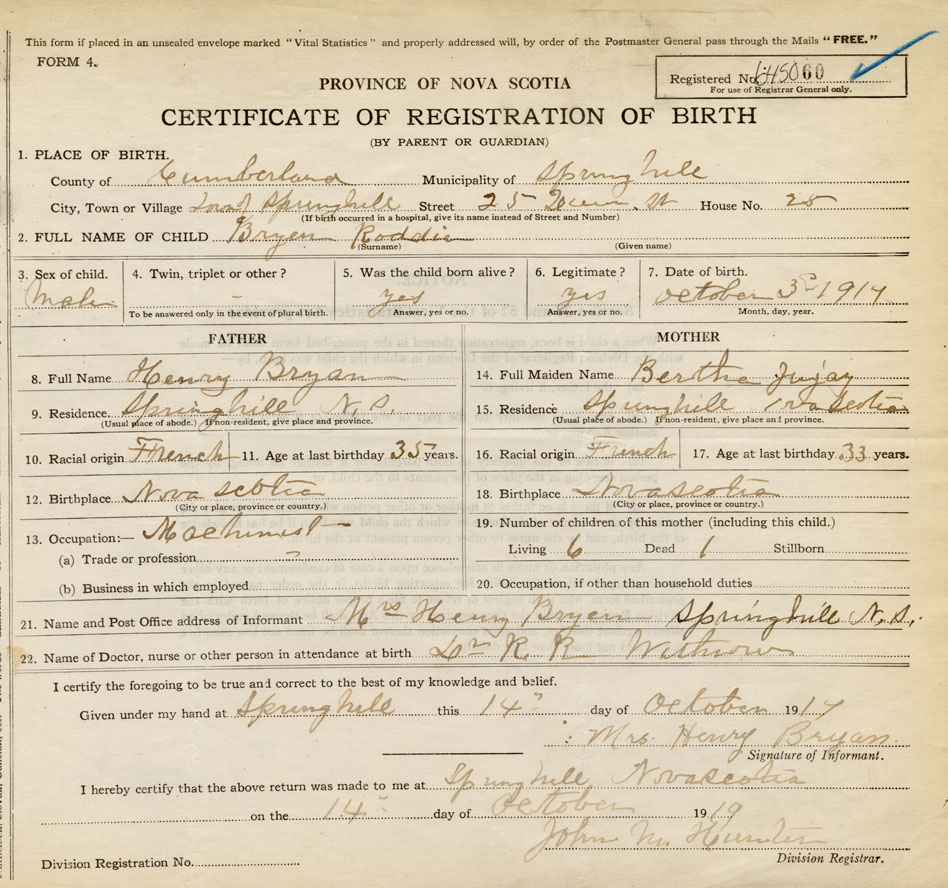 This form if placed in an unsealed envelope marked "Vital Statistics" and properly addressed will, by order of the Postmaster General pass through the Mails "FREE."
FORM 4.
Registered No. 645060
For use of Registrar General only.
PROVINCE OF NOVA SCOTIA
CERTIFICATE OF REGISTRATION OF BIRTH
(BY PARENT OR GUARDIAN)
1. PLACE OF BIRTH.
County of Cumberland Municipality of Springhill
City, Town or Village Springhill Street 25 St House No. 25
(If birth occurred in a hospital, give its name instead of Street and Number)
2. FULL NAME OF CHILD Bryen Roddie
(Surname) (Given name)
3. Sex of child. 4. Twin, triplet or other? 5. Was the child born alive? 6. Legitimate? 7. Date of birth.
Male - yes yes October 3rd 1917
To be answered only in the event of plural birth. Answer, yes or no. Answer, yes or no. Month, day, year.
FATHER MOTHER
8. Full Name Henry Bryan 14. Full Maiden Name Bertha
9. Residence. Springhill N.S. 15. Residence Springhill Novascotia
(Usual place of abode.) If non-resident, give place and province. (Usual place of abode.) If non-resident, give place and province.
10. Racial origin French 11. Age at last birthday 35 years. 16. Racial origin French 17. Age at last birthday 33 years.
12. Birthplace Nova scotia 18. Birthplace Novascotia
(City or place, province or country.) (City or place, province or country.)
13. Occupation:— Machinist 19. Number of children of this mother (including this child.)
(a) Trade or profession Living 6 Dead 1 Stillborn
(b) Business in which employed 20. Occupation, if other than household duties
21. Name and Post Office address of Informant Mrs Henry Bryen Springhill N.S.
22. Name of Doctor, nurse or other person in attendance at birth Dr R. R. Withrow
I certify the foregoing to be true and correct to the best of my knowledge and belief.
Given under my hand at Springhill this 14 day of October 1917
Mrs. Henry Bryan
Signature of Informant.
I hereby certify that the above return was made to me at Springhill Novascotia
on the 14 day of October 1919
John M. Hunter
Division Registrar.
Division Registration No.